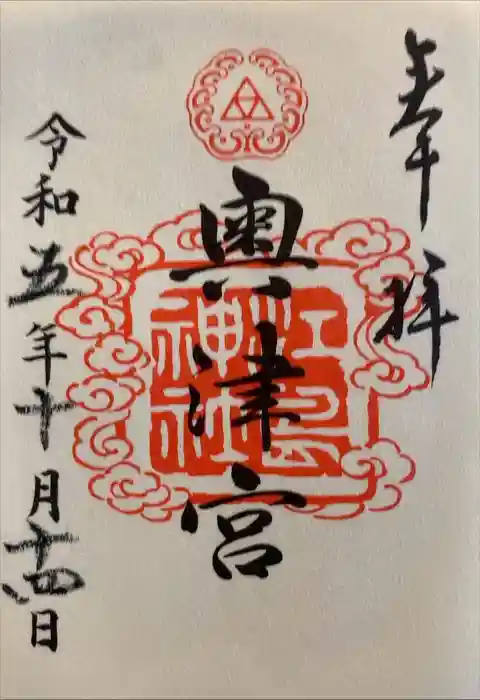 奉拝
奥津宮
江島神社
令和五年十月十四日